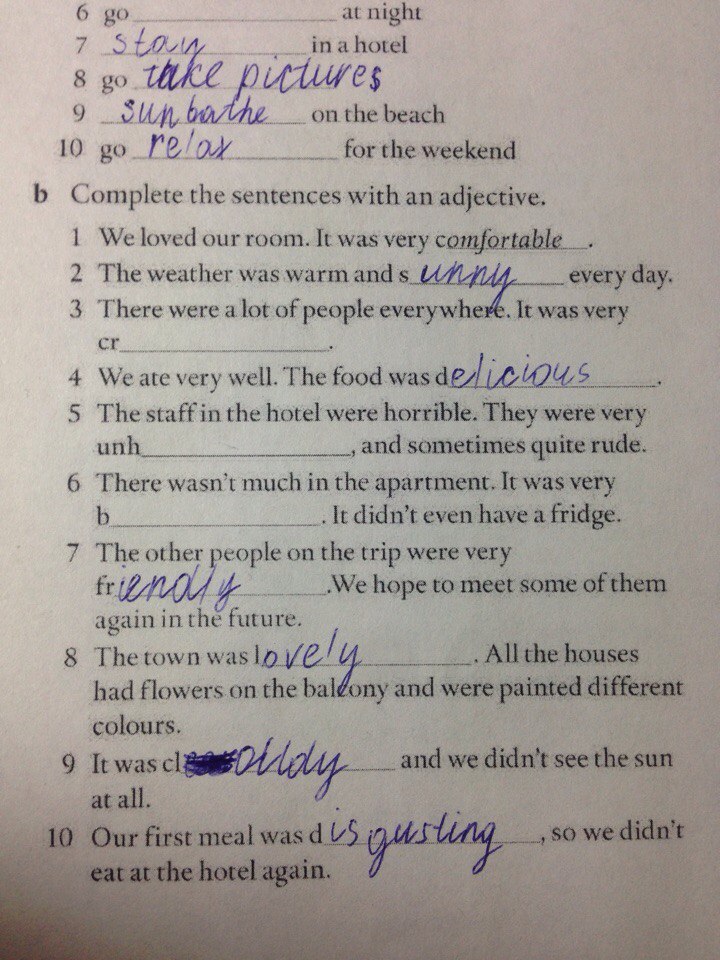 6 go ____________ at night
7 stay in a hotel
8 go take pictures
9 sunbathe on the beach
10 go relax for the weekend
b Complete the sentences with an adjective.
1 We loved our room. It was very comfortable.
2 The weather was warm and sunny every day.
3 There were a lot of people everywhere. It was very
cr____________.
4 We ate very well. The food was delicious.
5 The staff in the hotel were horrible. They were very
unh____________, and sometimes quite rude.
6 There wasn't much in the apartment. It was very
b____________. It didn't even have a fridge.
7 The other people on the trip were very
friendly.We hope to meet some of them
again in the future.
8 The town was lovely. All the houses
had flowers on the balcony and were painted different
colours.
9 It was clouldy and we didn't see the sun
at all.
10 Our first meal was disgusting, so we didn't
eat at the hotel again.